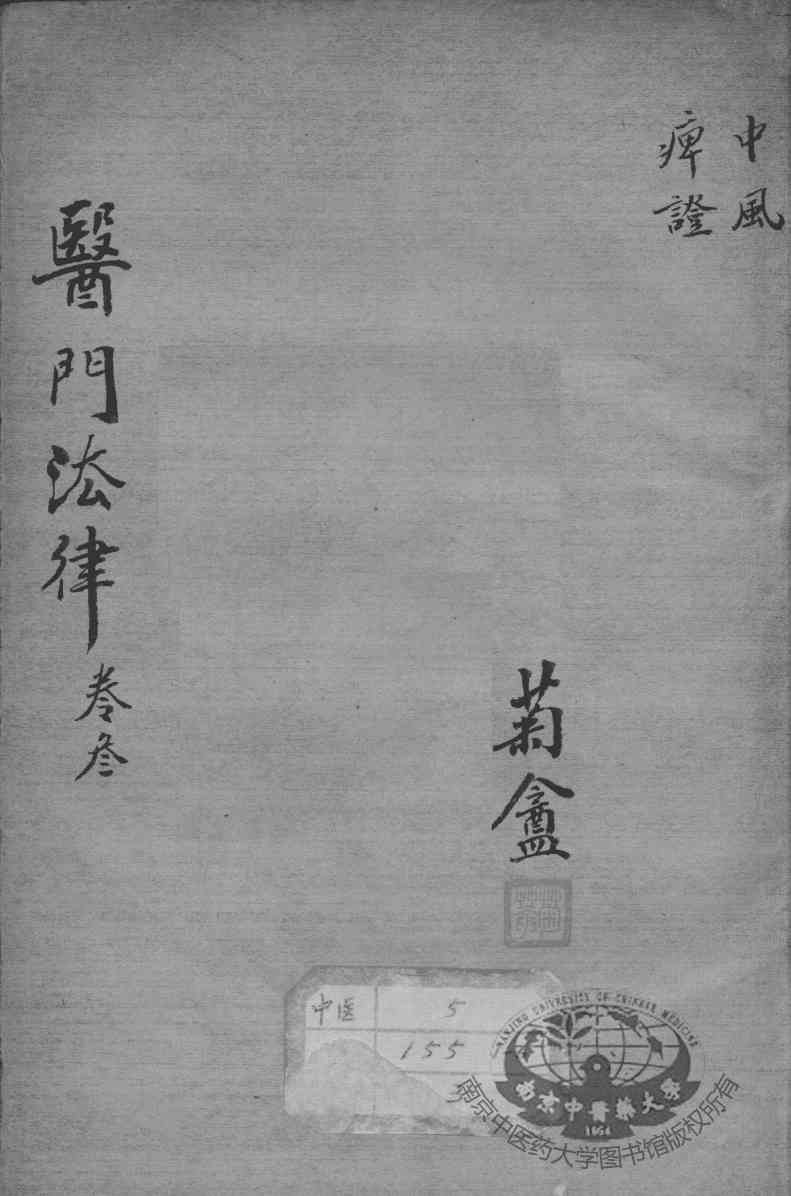 中風
痺證
菊盦
醫門法律
卷叄
中医 5
155
NANJING UNIVERSITY OF CHINESE MEDICINE
南京中醫藥大學
1954
南京中医药大学图书馆版权所有